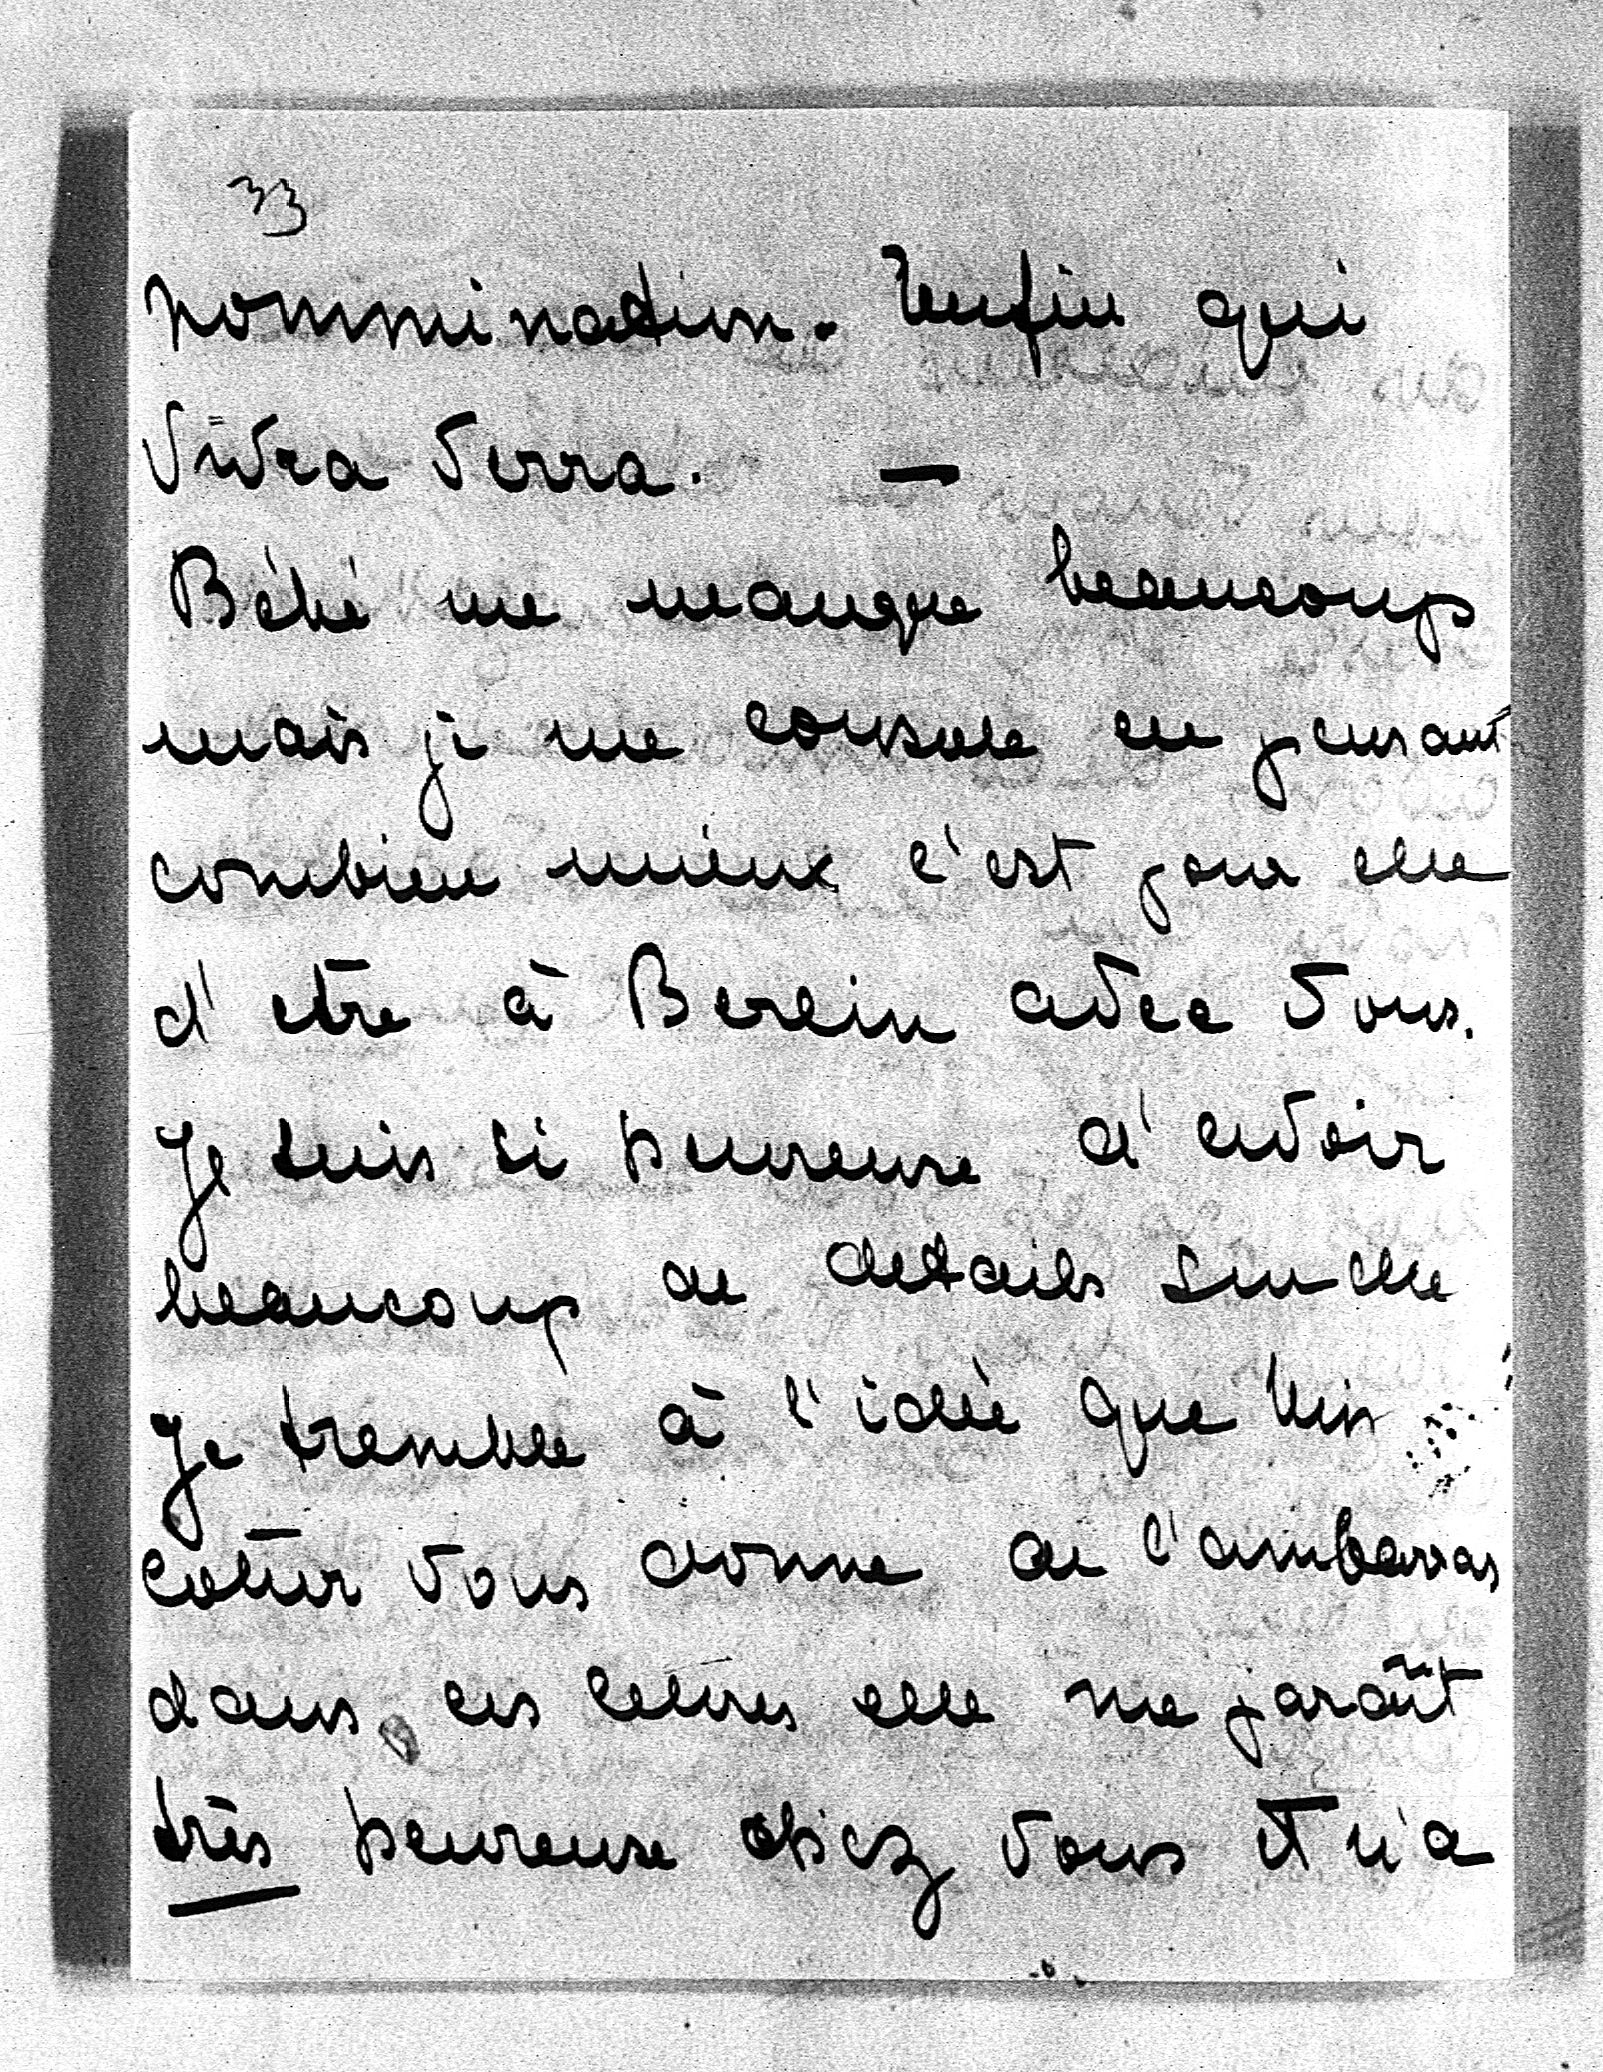 33
nommination. Enfin qui
Vivra Verra. —
Bébé me manque beaucoup
mais je me console en pensant
combien mieux c'est pour elle
d'etre à Berlin avec Vous.
Je suis si heureuse d'avoir
beaucoup de details sur elle
Je tremble à l'idée que Miss
Vous donne de l'ambarras
dans ces lettres elle me paraît
très heureuse chez Vous et n'a